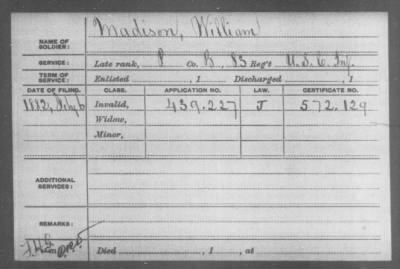 NAME OF SOLDIER: Madison, William
SERVICE: Late rank, P Co. B, 83 Reg't U.S.C. Inf.
TERM OF SERVICE: Enlisted , 1 Discharged , 1
DATE OF FILING. CLASS. APPLICATION NO. LAW. CERTIFICATE NO.
1882, 6 Invalid, 439.227 J 572.129
Widow,
Minor,
ADDITIONAL SERVICES:
REMARKS:
Died , 1 , at